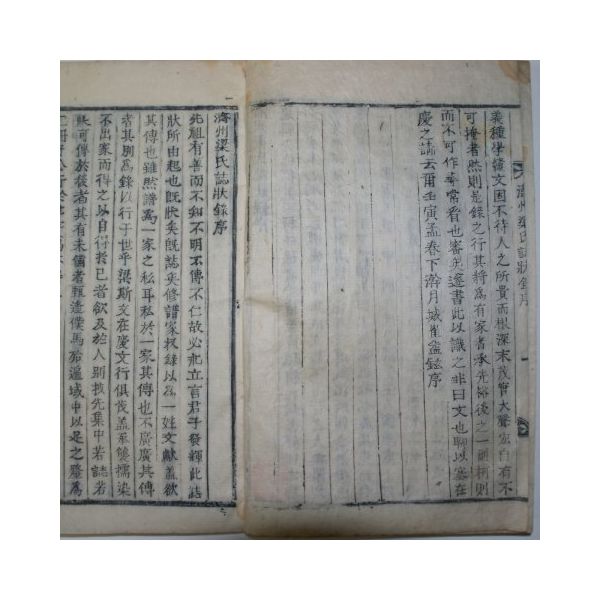 濟州梁氏誌狀錄序
義種學績文固不待人之所貴而根深末茂實大聲宏自有不
可掩者然則是錄之行其將爲有家者承先裕後之一副柯則
而不可作尋常看也審矣遂書此以識之非曰文也聊以塞在
慶之請云爾壬寅孟春下澣月城崔鉉序
濟州梁氏誌狀錄序
先祖有善而不知不明不傳不仁故必礼立言君子發輝此誌
狀所由起也旣狀矣旣誌矣修譜家收錄以爲一姓文獻盖欲
其傳也雖然譜爲一家之私耳私於一家其傳也不廣廣其傳
者其別爲錄以行于世乎梁斯文在慶文行俱茂盖羹饒擩染
不出家而得之以自得於己者欲及於人別抜先集中若誌若
狀可傳於後者其有未備者輒造僕馬殆遍域中以是之發爲